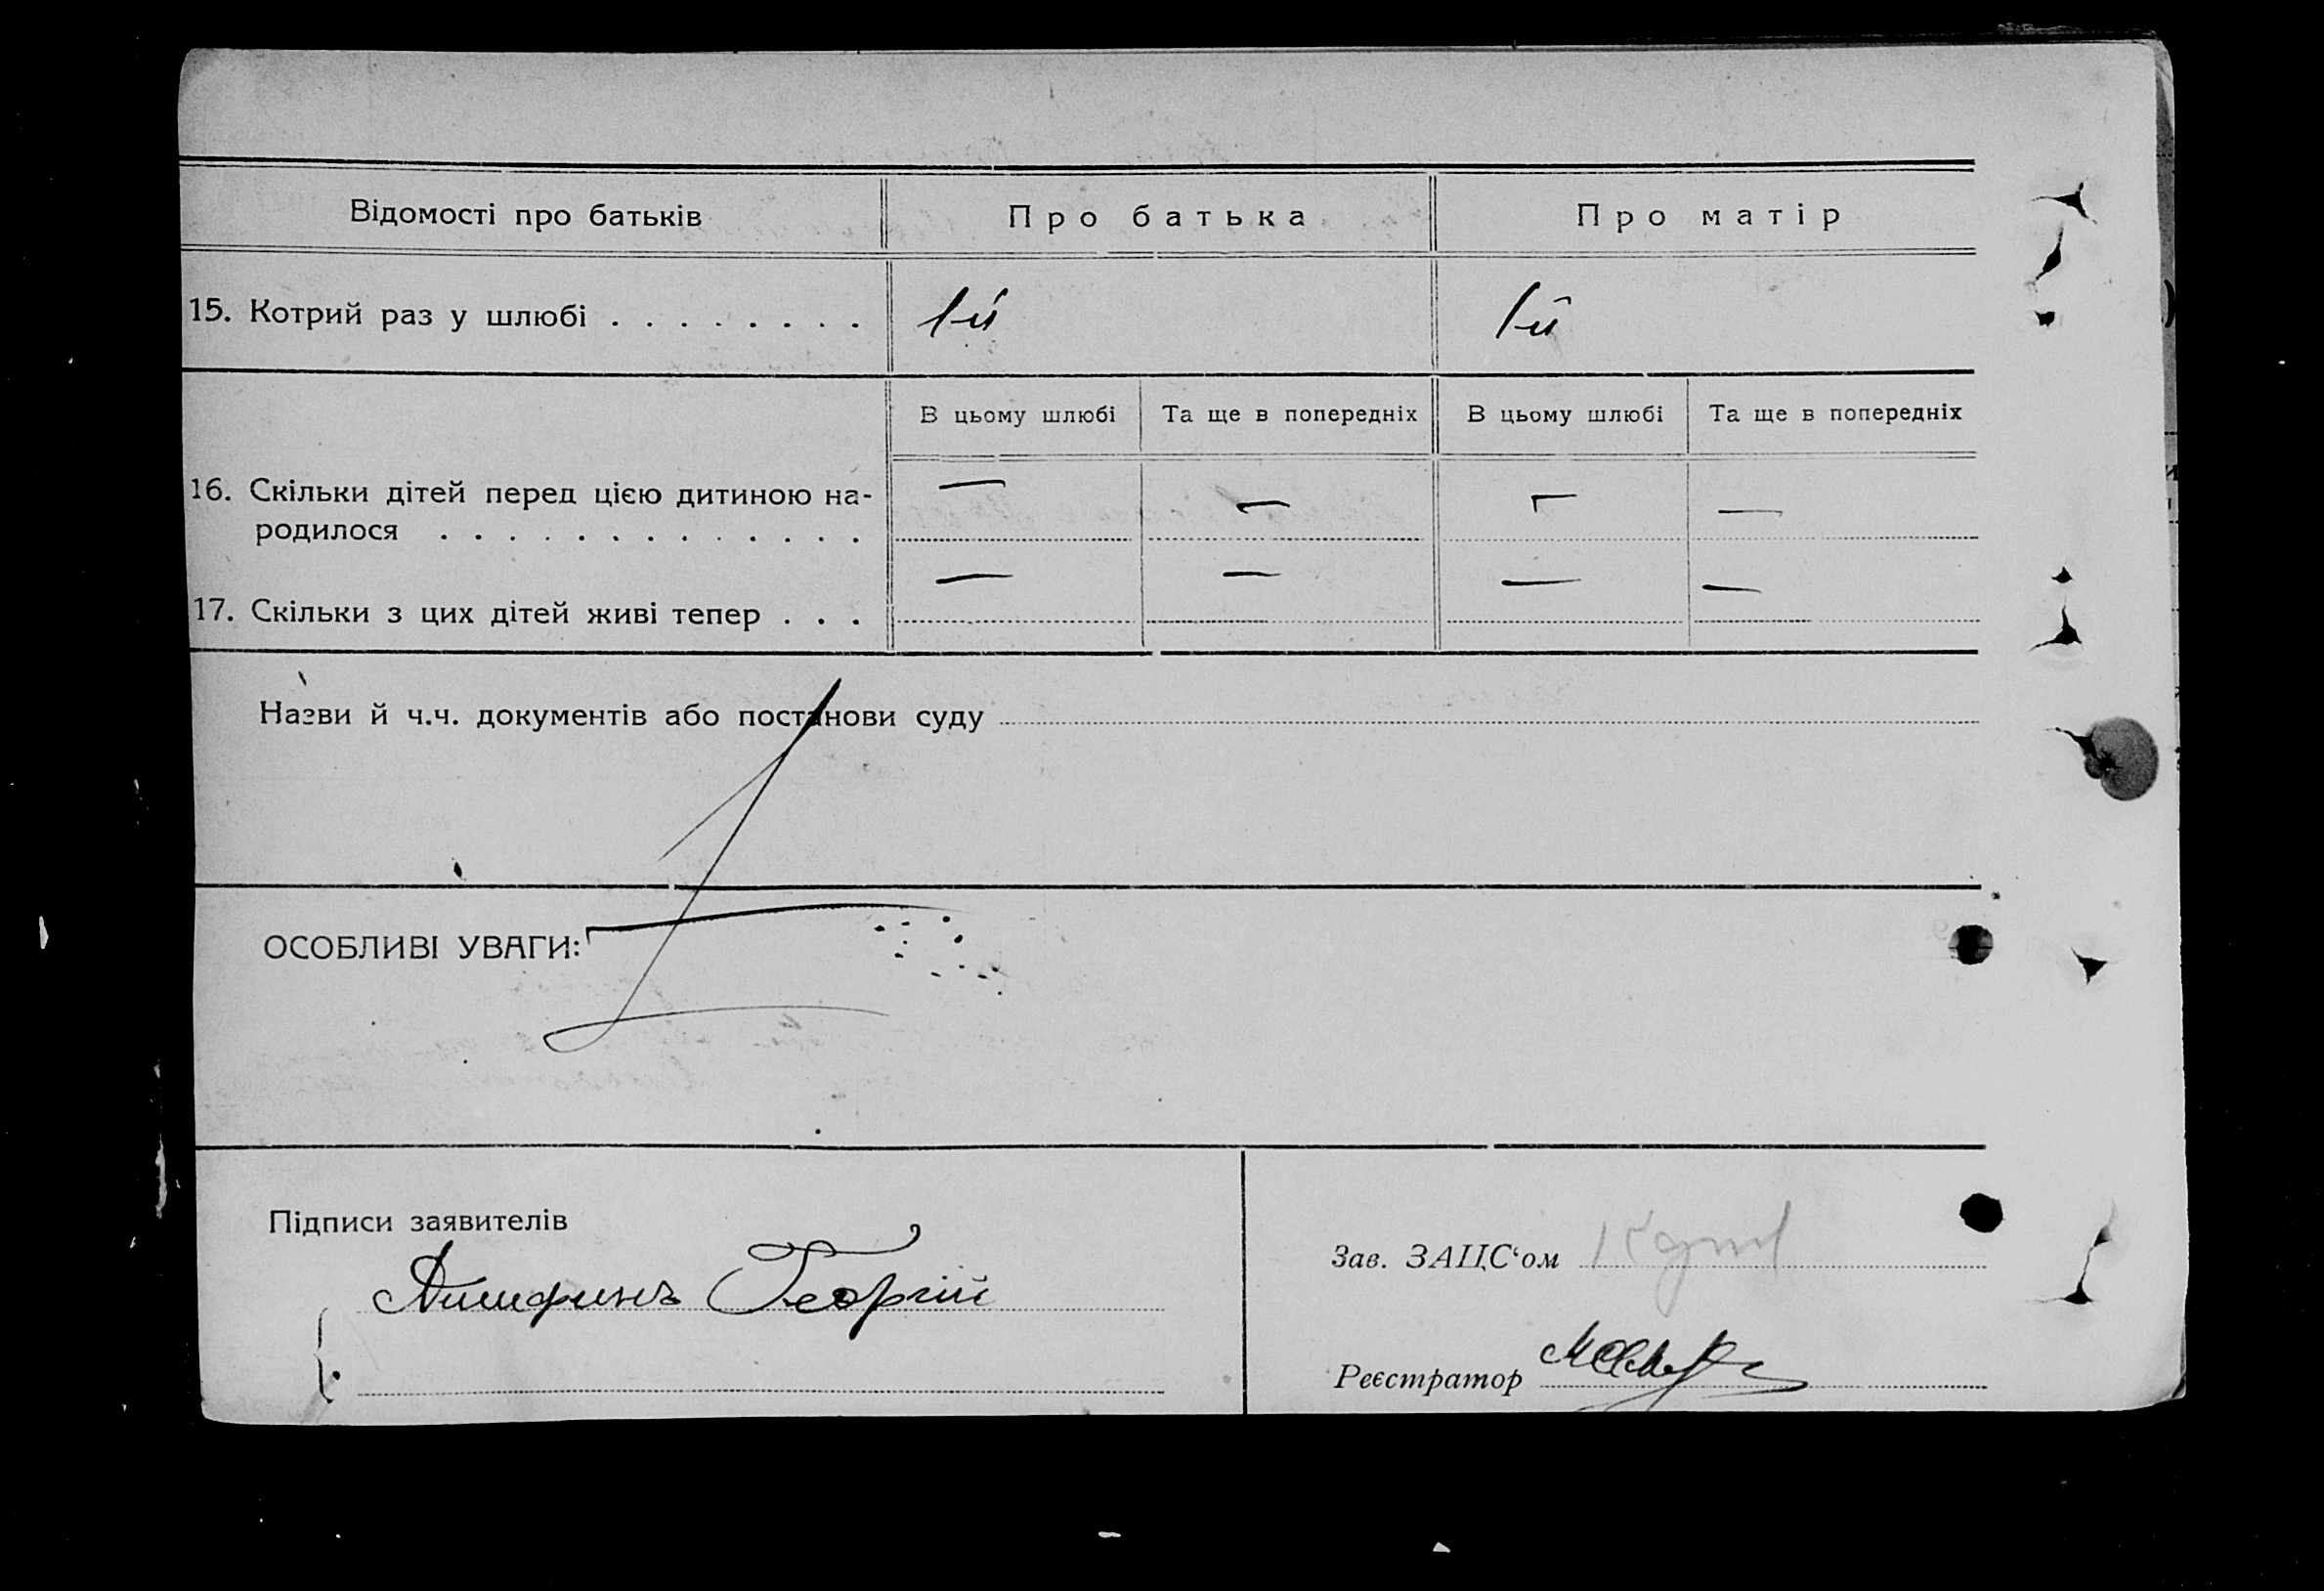 Відомості про батьків Про батька Про матір
15. Котрий раз у шлюбі . . . . . . . . 1-й 1-й
В цьому шлюбі Та ще в попередніх В цьому шлюбі Та ще в попередніх
16. Скільки дітей перед цією дитиною на- — — — —
родилося . . . . . . . . . . . . .
17. Скільки з цих дітей живі тепер . . . — — — —
Назви й ч.ч. документів або постанови суду
ОСОБЛИВІ УВАГИ:
Підписи заявителів
Георгій
Зав. ЗАЦС‘ом
Реєстратор